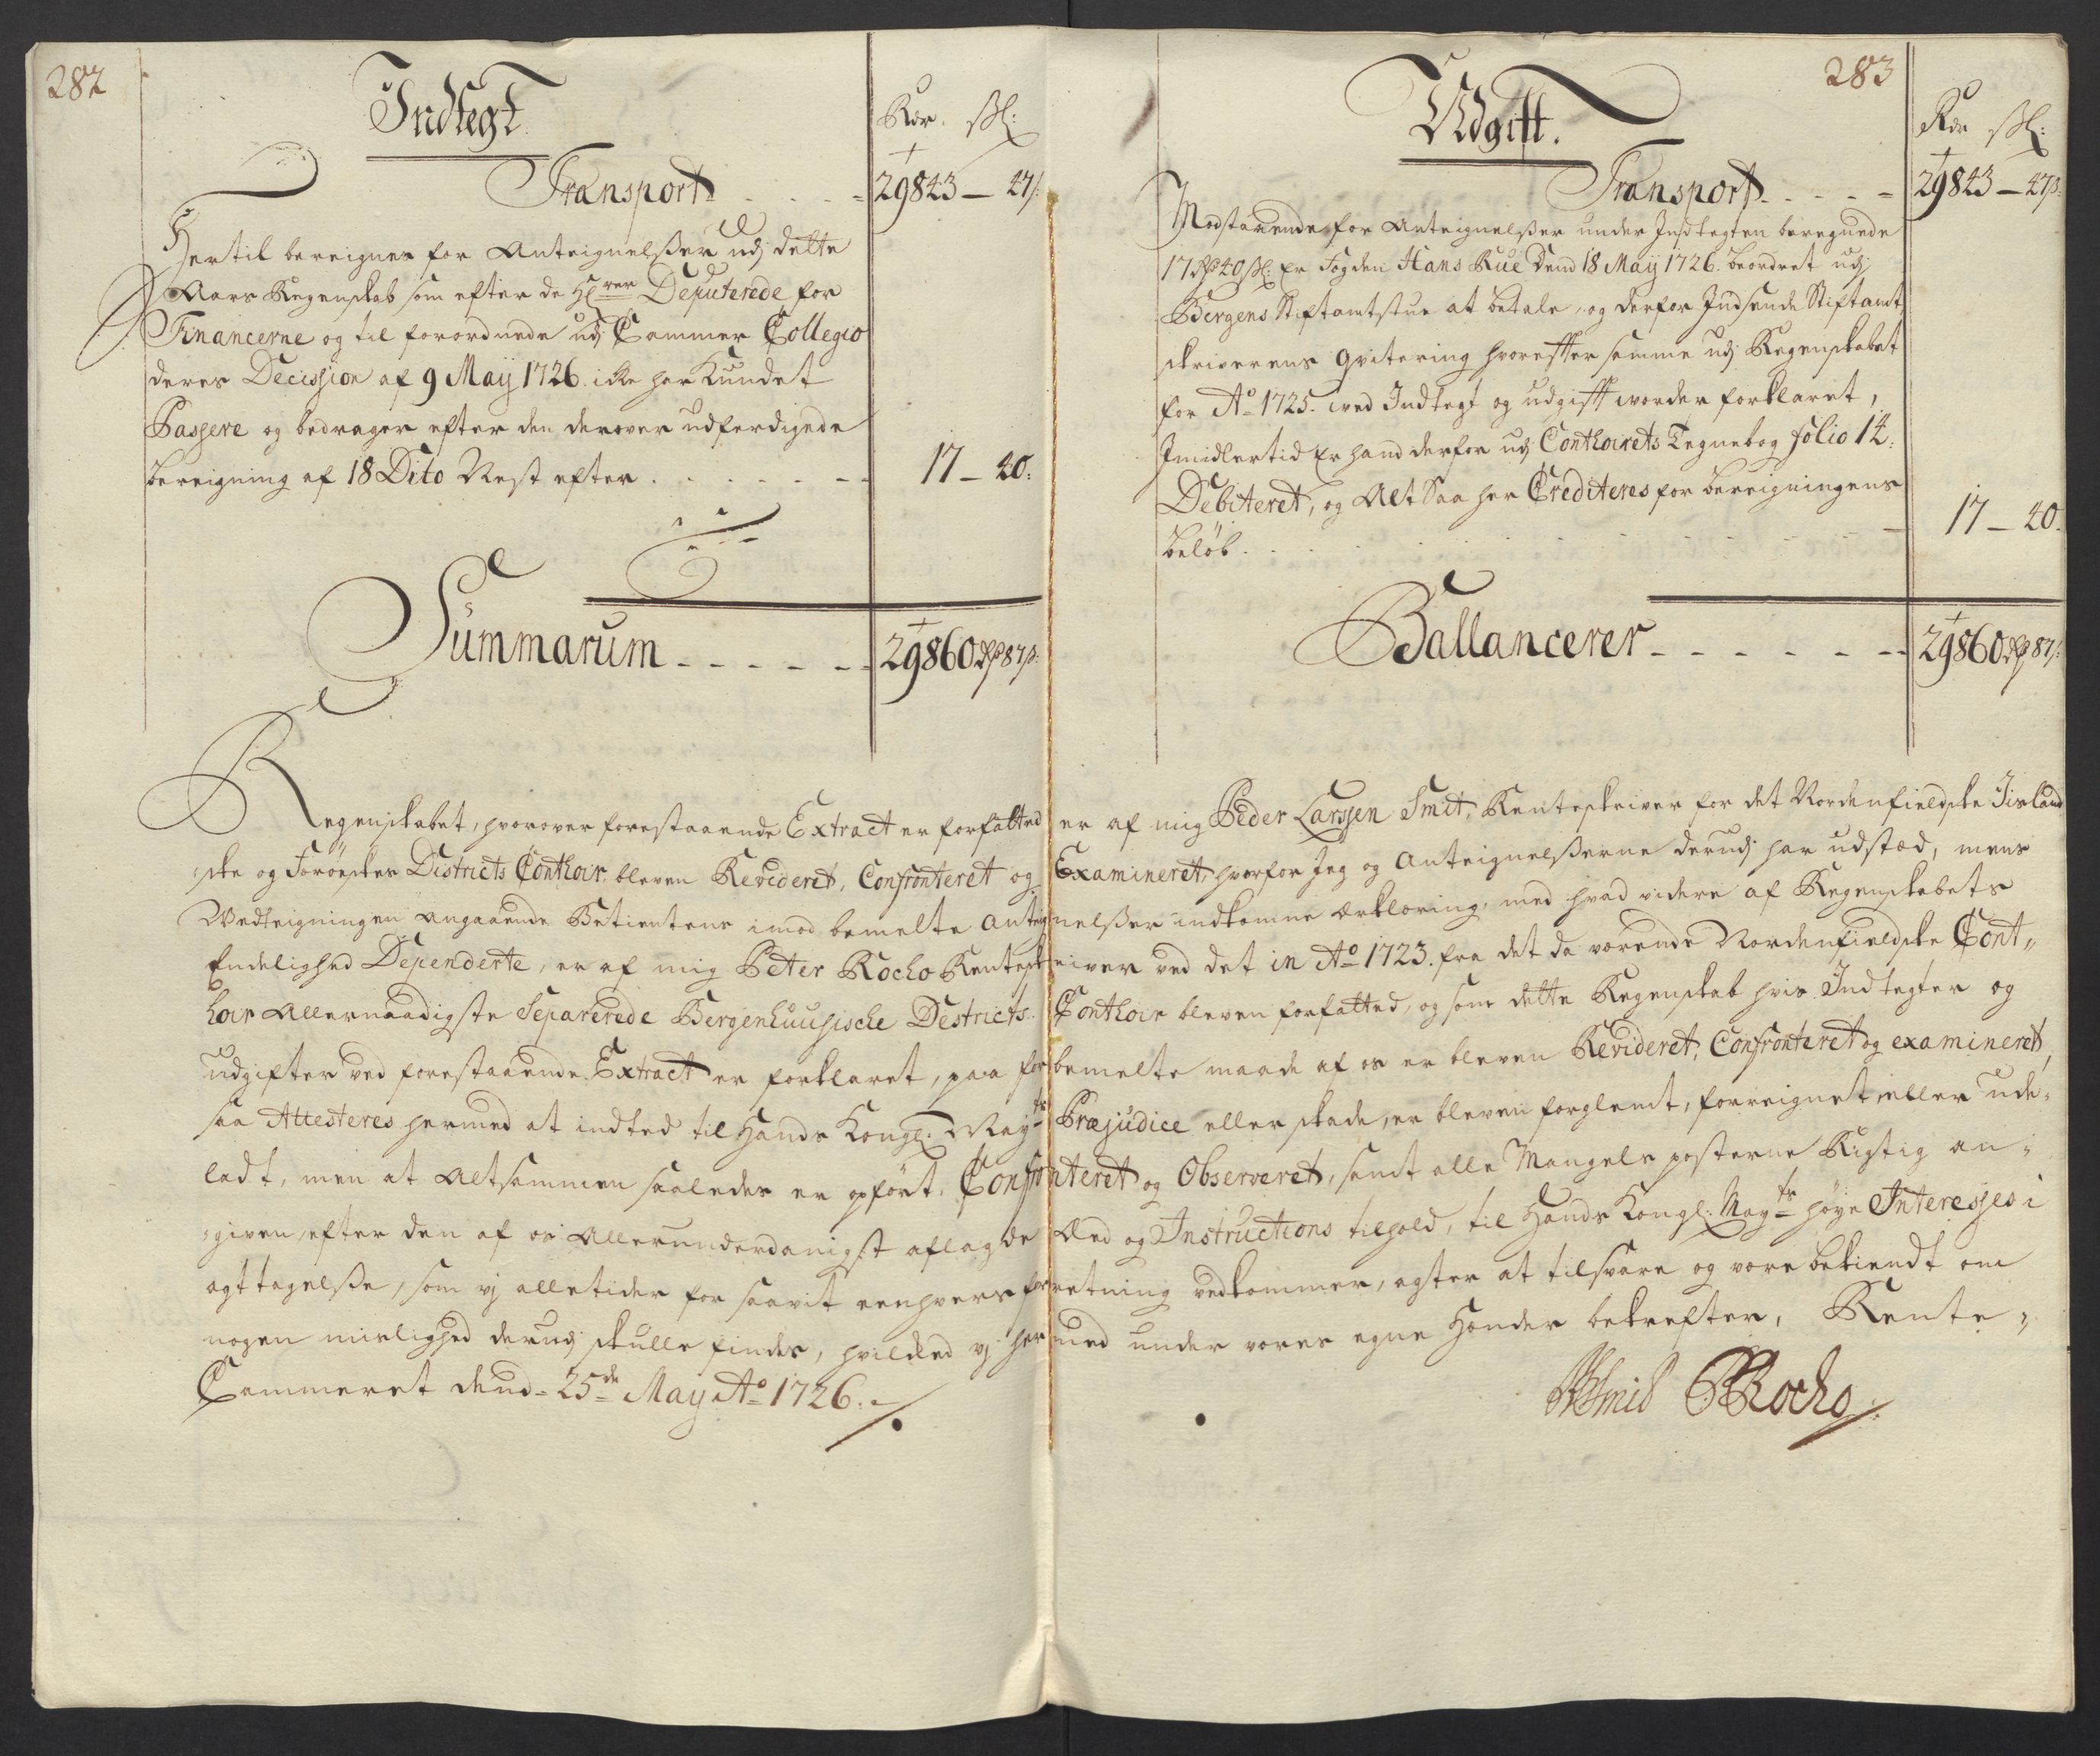 282
Indtegt
Rdr. ßl:
Transport - - - - 29843 - 47ß:
Hertil bereignes for Anteignelßer udj dette
Aars Regenskab som efter de H<sup>rer</sup> Deputerede for
Financerne og til forordnede udj Cammer Collegio
deres Decission af 9 Maÿ 1726. icke har Kundet
Passere og bedrager efter den derover udferdigede
bereigning af 18 Dito Rest efter - - - - - 17 - 40:
Summarum - - - - - - 29860 rdr 87ß:
283
Udgift.
Rdr ßl:
Transport - - - - 29843 - 47ß:
Modstaaende for Anteignelßer under Indtegten beregnede
17 rdr 40 ßl: Er Fogden Hans Rue Dend 18 Maÿ 1726. beordret udj
Bergens Stiftamtstue at betale, og derfor Indsende Stiftamt
skriverens Qvitering hvorefter samme udj Regenskabet
for A° 1725. ved Indtegt og udgift vorder forklaret,
Imidlertid Er hand derfor udj Conthoirets Tegnebog folio 14.
Debiteret, og Alt Saa her Crediteres for bereigningens
beløb - - - - - - - - 17 - 40.
Ballancerer - - - - - - 29860 rdr 87ß:
Regenskabet, hvorover forestaaende Extract er forfatted er af mig Peder Larssen Smit, Renteskriver for det Nordenfieldske Iisland
ske og Færøeske Districts Conthoir bleven Revideret, Confronteret og Examineret, hvorfor Jeg og Anteignelßerne derudj har udstæd, mens
Vedteigningen angaaende Betientens imod bemelte Anteignelßer indkomne Ærklæring, med hvad videre af Regenskabets
Endelighed Dependerte, er af mig Peter Rocho Renteskriver ved det in A° 1723. fra det da værende Nordenfieldske Cont„
hoir Allernaadigste Separerede Bergenhuusische Districts Conthoir bleven forfatted, og som dette Regenskab hvis Indtegter og
udgifter ved forestaaende Extract er forklaret, paa forbemelte maade af os er bleven Revideret, Confronteret og examineret,
saa Attesteres hermed at indted til Hands Kongl: May<sup>ts</sup> Præjudice eller skade, er bleven forglemt, forreignet eller ude„
ladt, men at Altsammen saaledes er opført, Confronteret og Observeret, samt alle Mangels posterne Rigtig an„
given efter den af os Allerunderdanigst aflagde Æed og Instructions tilhold, til Hands Kongl: May<sup>ts</sup> høye Interesses i
agttagelße, som vj alletider for saavit eenhvers forretning vedkommer, agter at tilsvare og være bekiendt om
nogen mislighed derudj skulle findes, hvilcked vj hermed under vores egne Hænder bekrefter, Rente„
Cammeret dend 25<sup>de</sup> Maÿ A° 1726.
PLSmid PRocho